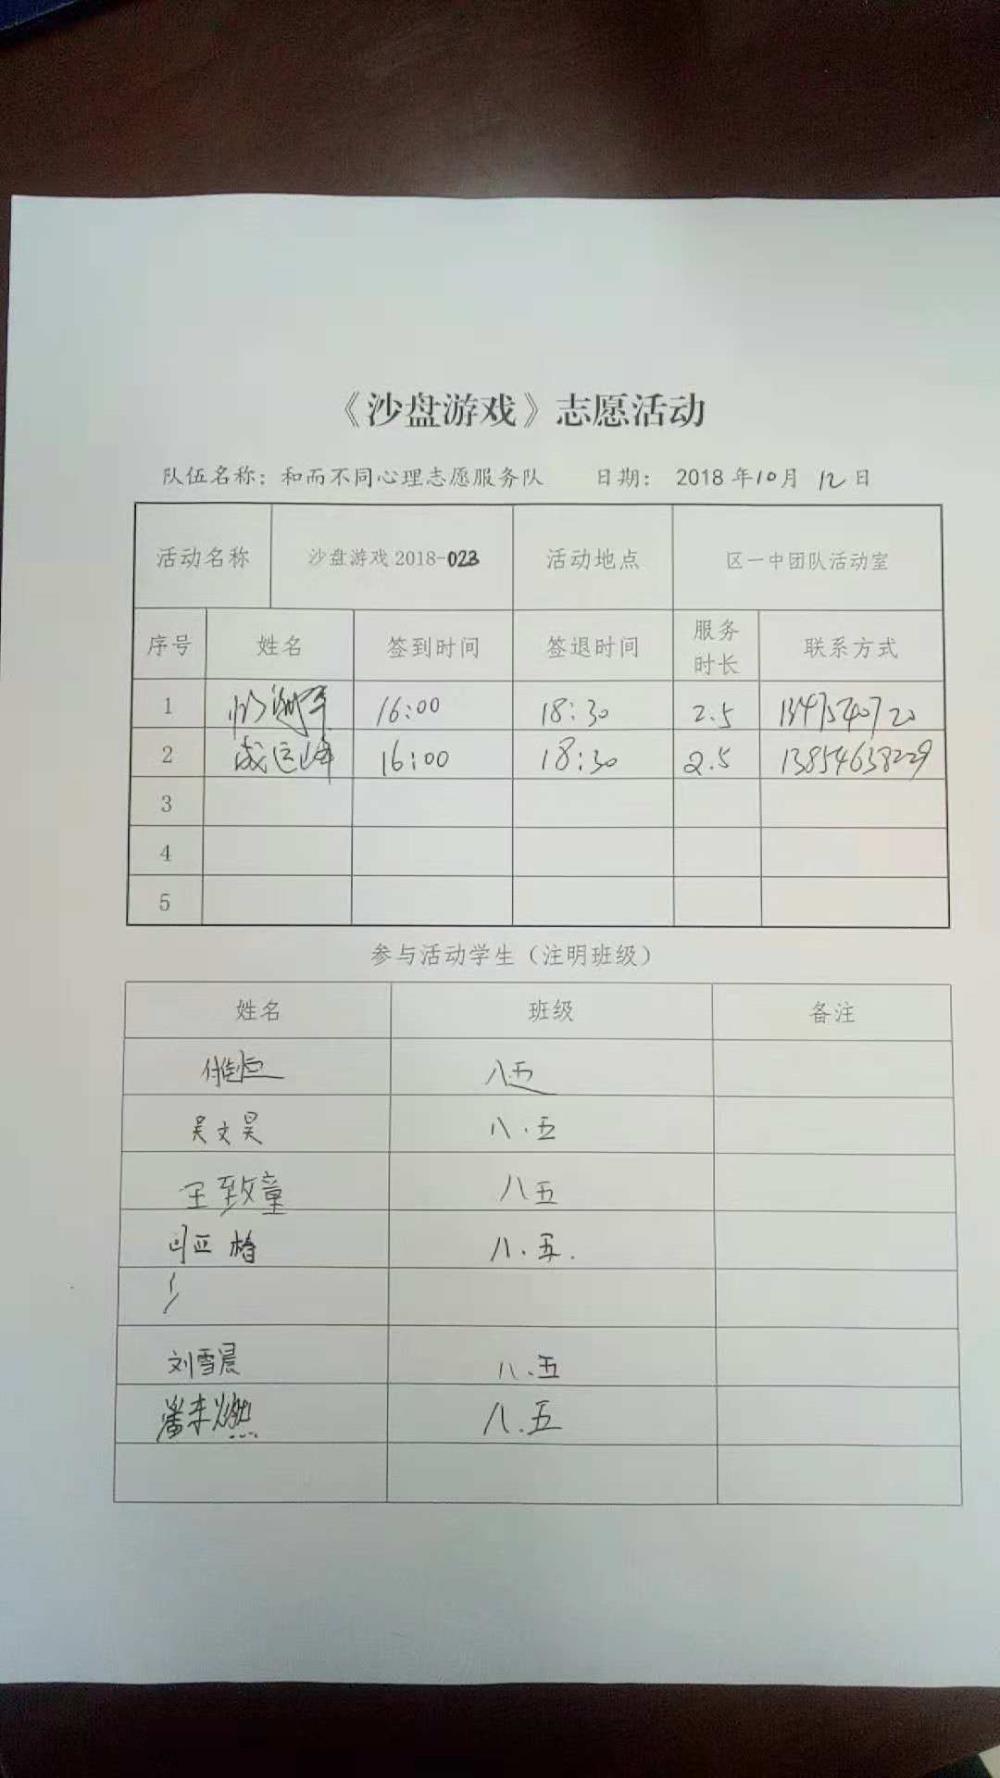 《沙盘游戏》志愿活动
队伍名称：和而不同心理志愿服务队 日期： 2018 年10月 12日
活动名称 沙盘游戏 2018-023 活动地点 区一中团队活动室
序号 姓名 签到时间 签退时间 服务时长 联系方式
1 16:00 18:30 2.5 13475740720
2 成运峰 16:00 18:30 2.5 13854638229
3
4
5
参与活动学生（注明班级）
姓名 班级 备注
八五
吴文昊 八.五
王致童 八五
八.五.
刘雪晨 八.五
八.五